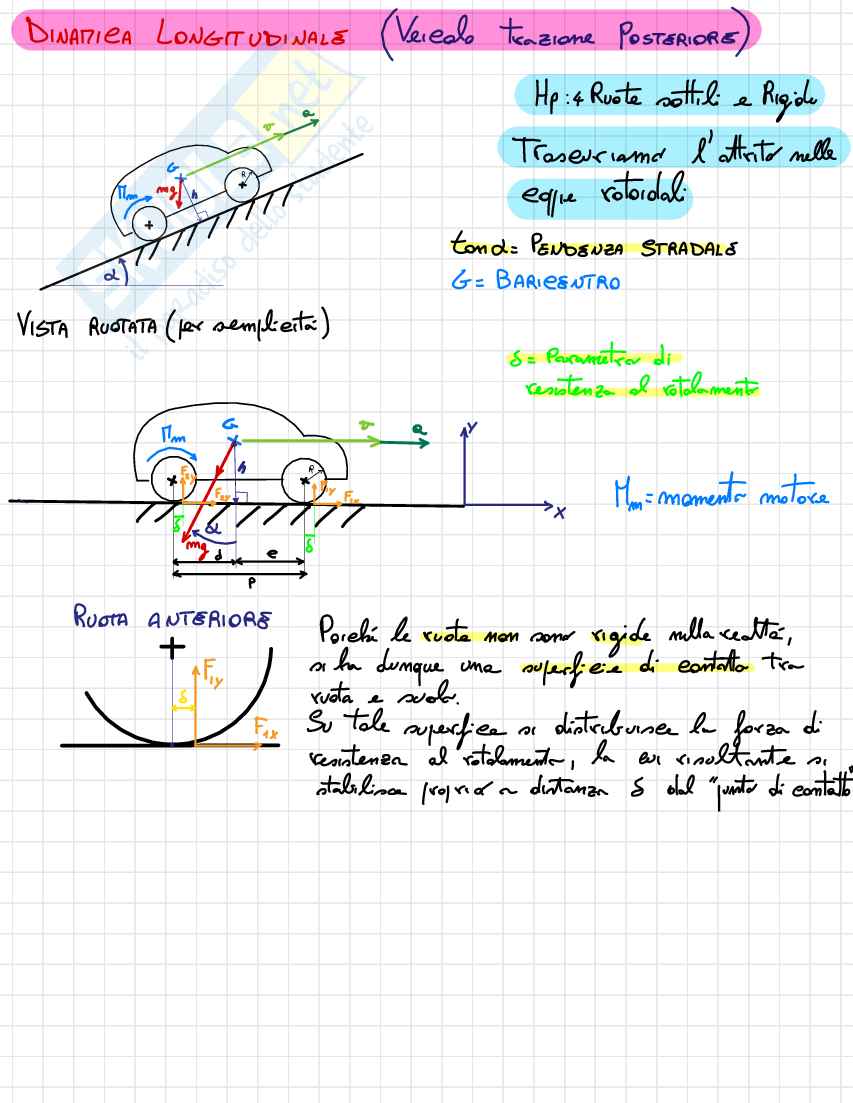 DINAMICA LONGITUDINALE (Veicolo trazione POSTERIORE)
Hp: 4 Ruote sottili e Rigide
Trascuriamo l'attrito nelle
cqqie rotoidali
tanα = PENDENZA STRADALE
G = BARICENTRO
v
a
G
R
Mm
mg
h
α
il paradiso dello studente
VISTA RUOTATA (per semplicità)
δ = Parametro di
resistenza al rotolamento
G
v
a
y
Mm
h
R
F2y
F2x
F1y
F1x
Mm = momento motore
x
δ
α
δ
mg
d
e
p
RUOTA ANTERIORE
F1y
δ
F1x
Poiché le ruote non sono rigide nella realtà,
si ha dunque una superficie di contatto tra
ruota e suolo.
Su tale superfice si distribuisce la forza di
resistenza al rotolamento, la cui risultante si
stabilisce proprio a distanza δ dal "punto di contatto"